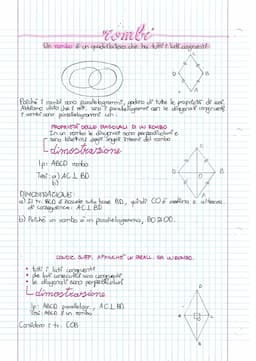 rombi
Un rombo è un quadrilatero che ha tutti i lati congruenti
D
A
C
B
Poiché i rombi sono parallelogrammi, godono di tutte le proprietà di essi.
PROPRIETÀ DELLE DIAGONALI DI UN ROMBO
In un rombo le diagonali sono perpendicolari e
sono bisettrici degli angoli interni del rombo
dimostrazione
Ip: ABCD rombo
Tesi: a) AC ⊥ BD
b)
D
A
C
B
DIMOSTRAZIONE:
a) Il tr. BCD è isoscele sulla base BD, quindi CO è mediana e altezza
di conseguenza AC ⊥ BD
b) Poiché un rombo è un parallelogramma, BO≅OD.
COND. SUFF. AFFINCHÉ UN PARALL. SIA UN ROMBO.
• tutti i lati congruenti
• due lati consecutivi sono congruenti
• le diagonali sono perpendicolari
dimostrazione
Ip: ABCD parallelogr., AC ⊥ BD
Tesi: ABCD è un rombo
Considero i tr. COB
D
A
C
B